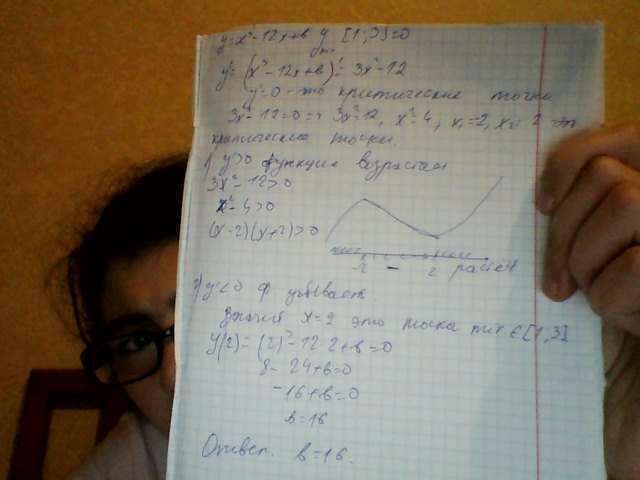 y=x³-12x+b y [1;3]=0
y'=(x³-12x+b)'=3x²-12
y'=0 - это критические точки
3x²-12=0 => 3x²=12, x²=4, x₁=-2, x₂=2 это
критические точки.
1) y'>0 функция возрастает
3x²-12>0
x²-4>0
(x-2)(x+2)>0
-2 - 2 растёт
2) y'<0 ф убывает
Значит x=2 это точка min ∈[1;3]
y(2)=(2)³-12·2+b=0
8-24+b=0
-16+b=0
b=16
Ответ. b=16.